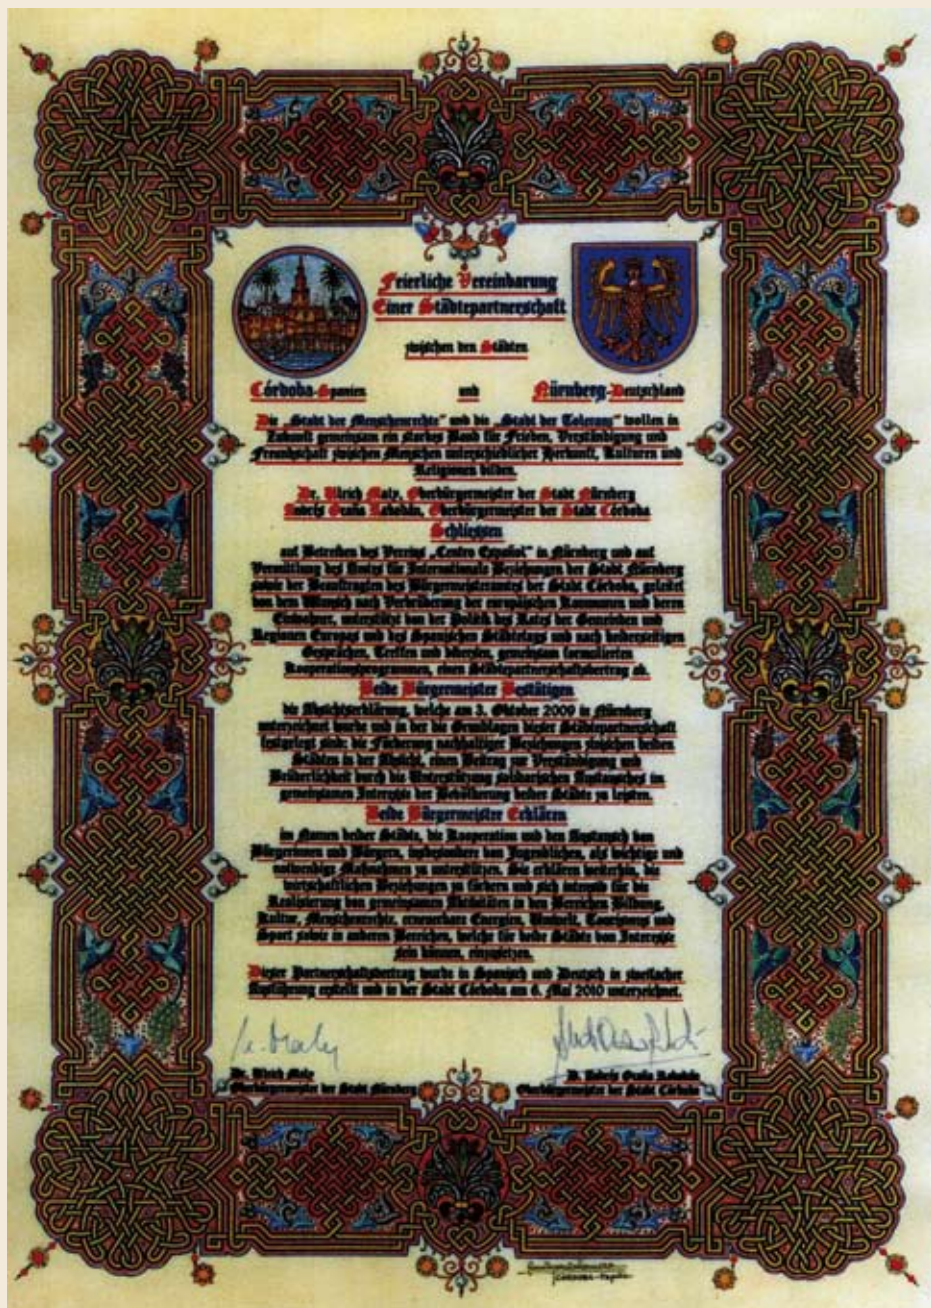 Feierliche Vereinbarung
Einer Städtepartnerschaft
zwischen den Städten
Córdoba-Spanien und Nürnberg-Deutschland
Die „Stadt der Menschenrechte“ und die „Stadt der Toleranz“ wollen in
Zukunft gemeinsam ein starkes Band für Frieden, Verständigung und
Freundschaft zwischen Menschen unterschiedlicher Herkunft, Kulturen und
Religionen bilden.
Dr. Ulrich Maly, Oberbürgermeister der Stadt Nürnberg
Andrés Ocaña Rabadán, Oberbürgermeister der Stadt Córdoba
Schliessen
auf Betreiben des Vereins „Centro Español“ in Nürnberg und auf
Vermittlung des Amtes für Internationale Beziehungen der Stadt Nürnberg
sowie der Beauftragten des Bürgermeisteramtes der Stadt Córdoba, geleitet
von dem Wunsch nach Verbrüderung der europäischen Kommunen und deren
Einwohner, unterstützt von der Politik des Rates der Gemeinden und
Regionen Europas und des Spanischen Städtetags und nach beiderseitigen
Gesprächen, Treffen und gemeinsam formulierten
Kooperationsprogrammen, einen Städtepartnerschaftsvertrag ab.
Beide Bürgermeister Bestätigen
die Absichtserklärung, welche am 3. Oktober 2009 in Nürnberg
unterzeichnet wurde und in der die Grundlagen dieser Städtepartnerschaft
festgelegt sind: die Förderung nachhaltiger Beziehungen zwischen beiden
Städten in der Absicht, einen Beitrag zur Verständigung und
Brüderlichkeit durch die Unterstützung solidarischen Austausches im
gemeinsamen Interesse der Bevölkerung beider Städte zu leisten.
Beide Bürgermeister Erklären
im Namen beider Städte, die Kooperation und den Austausch von
Bürgerinnen und Bürgern, insbesondere von Jugendlichen, als wichtige und
notwendige Maßnahmen zu unterstützen. Sie erklären weiterhin, die
wirtschaftlichen Beziehungen zu fördern und sich intensiv für die
Realisierung von gemeinsamen Aktivitäten in den Bereichen Bildung,
Kultur, Menschenrechte, erneuerbare Energien, Umwelt, Tourismus und
Sport sowie in anderen Bereichen, welche für beide Städte von Interesse
sein können, einzusetzen.
Dieser Partnerschaftsvertrag wurde in Spanisch und Deutsch in zweifacher
Ausführung erstellt und in der Stadt Córdoba am 6. Mai 2010 unterzeichnet.
Dr. Ulrich Maly
Oberbürgermeister der Stadt Nürnberg
D. Andrés Ocaña Rabadán
Oberbürgermeister der Stadt Córdoba